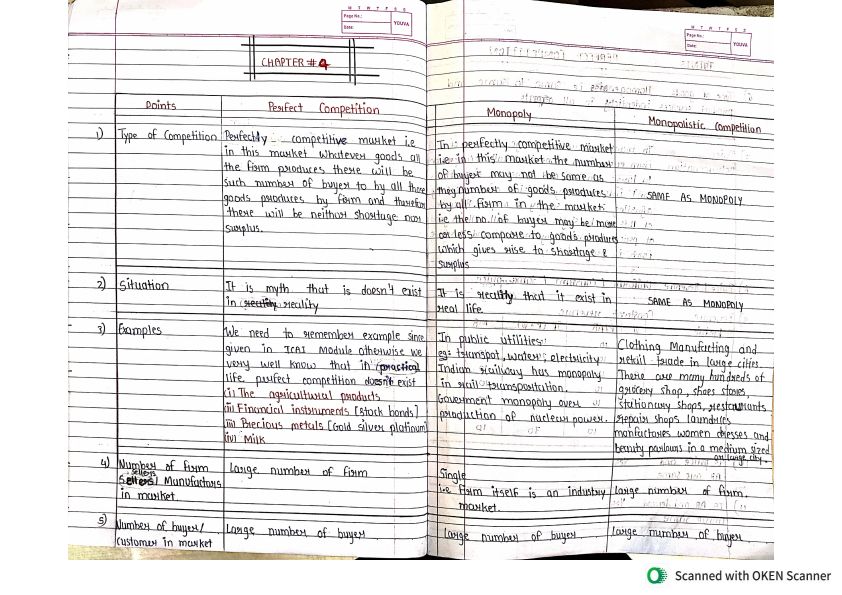 M T W T F S S
Page No.:
Date:
YOUVA
M T W T F S S
Page No.:
Date:
YOUVA
CHAPTER #4
Points
Perfect Competition
Monopoly
Monopolistic Competition
1) Type of Competition
Perfectly competitive market i.e
in this market whatever goods all
the firm produces there will be
such number of buyer to by all there
goods produces by form and therefor
there will be neither shortage nor
surplus.
In perfectly competitive market
i.e in this market the number
of buyer may not be same as
they number of goods produces
by all firm in the market
i.e the no. of buyer may be more
or less compare to goods produces
which gives rise to shortage &
surplus
SAME AS MONOPOLY
2) Situation
It is myth that is doesn't exist
in reality
It is reality that it exist in
real life.
SAME AS MONOPOLY
3) Examples
We need to remember example since
given in ICAI Module otherwise we
very well know that in practical
life perfect competition doesn't exist
(i) The agricultural products
(ii) Financial instruments [stock bonds]
(iii) Precious metals [Gold silver platinum]
(iv) Milk
In public utilities
eg: transpot, water, electricity
Indian railway has monopoly
in rail transportation.
Goverment monopoly over
production of nuclear power.
Clothing Manufacting and
retail trade in large cities.
There are many hundreds of
grocery shop, shoes stores,
stationary shops, restaurants
repair shops laundries
manfactores women dresses and
beauty parlours in a medium sized
or large city.
4) Number of firm
sellers
Manufactors
in market
Large number of firm
Single
i.e firm itself is an industry
market.
large number of firm.
5) Number of buyer/
customer in market
Large number of buyer
Large number of buyer
large number of buyer
Scanned with OKEN Scanner